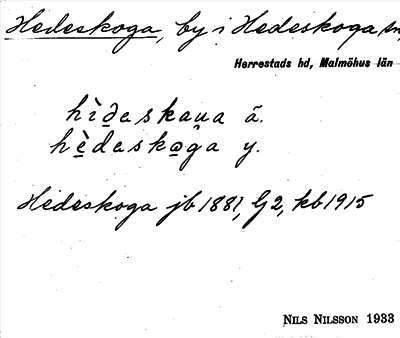 Hedeskoga, by i Hedeskoga sn,
Herrestads hd, Malmöhus län
hìđeskau̯a ä.
hèdaskøga y.
Hedeskoga jb 1881, G2, kb 1915
NILS NILSSON 1933